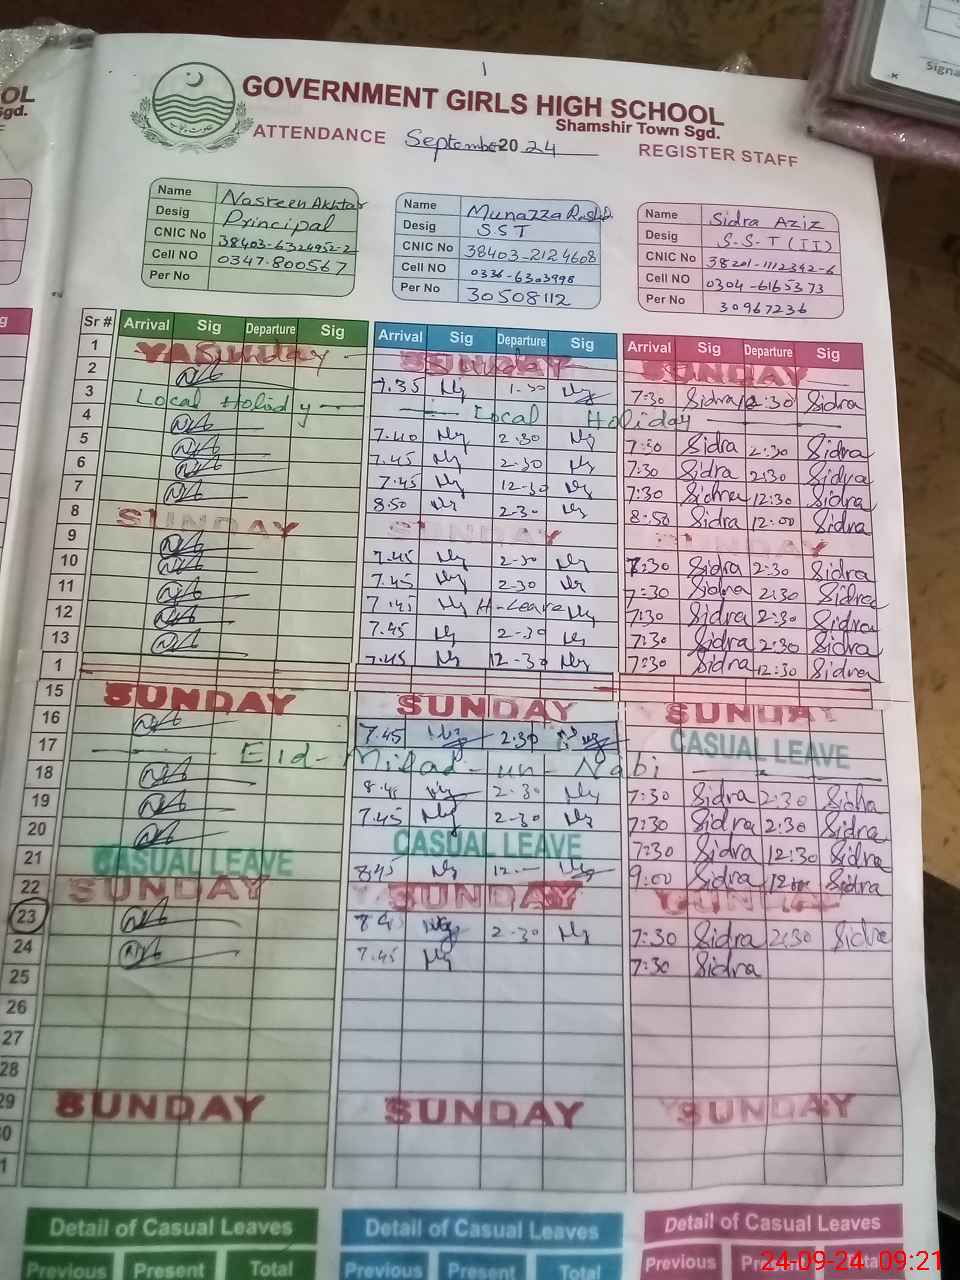 OL
Sgd.
1
GOVERNMENT GIRLS HIGH SCHOOL
Shamshir Town Sgd.
ATTENDANCE September 2024 REGISTER STAFF
Signa
Name Nasreen Akhtar
Desig Principal
CNIC No 38403-6324952-2
Cell NO 0347-800567
Per No
Name Munazza Rashid
Desig SST
CNIC No 38403-2124608
Cell NO 0336-6303998
Per No 30508112
Name Sidra Aziz
Desig S-S-T (II)
CNIC No 38201-1112342-6
Cell NO 0304-6165373
Per No 30967236
Sr # Arrival Sig Departure Sig Arrival Sig Departure Sig Arrival Sig Departure Sig
1 Sunday SUNDAY SUNDAY
2 7.35 7:30 Sidra 2:30 Sidra
3 Local Holiday Local Holiday
4 7.40 2.30 Sidra 2:30 Sidra
5 7.45 2.30 7:30 Sidra 2:30 Sidra
6 7.45 12-30 7:30 Sidra 12:30 Sidra
7 8.50 2.30 8:50 Sidra 12:00 Sidra
8 SUNDAY SUNDAY SUNDAY
9 7.45 2-30 7:30 Sidra 2:30 Sidra
10 7.45 2-30 7:30 Sidra 2:30 Sidra
11 7.45 H-Leave 7:30 Sidra 2:30 Sidra
12 7.45 2-30 7:30 Sidra 2:30 Sidra
13 7.45 12-30 7:30 Sidra 12:30 Sidra
1
15 SUNDAY SUNDAY SUNDAY
16 7.45 2:30 CASUAL LEAVE
17 Eid-Milad-un-Nabi
18 2-30 7:30 Sidra 2:30 Sidra
19 7.45 2-30 7:30 Sidra 2:30 Sidra
20 CASUAL LEAVE 7:30 Sidra 12:30 Sidra
21 CASUAL LEAVE 845 12 9:00 Sidra 12 Sidra
22 SUNDAY SUNDAY SUNDAY
23 2-30 7:30 Sidra 2:30 Sidra
24 7.45 7:30 Sidra
25
26
27
28
29 SUNDAY SUNDAY SUNDAY
0
1
Detail of Casual Leaves Detail of Casual Leaves Detail of Casual Leaves
Previous Present Total Previous Present Total Previous
24-09-24 09:21